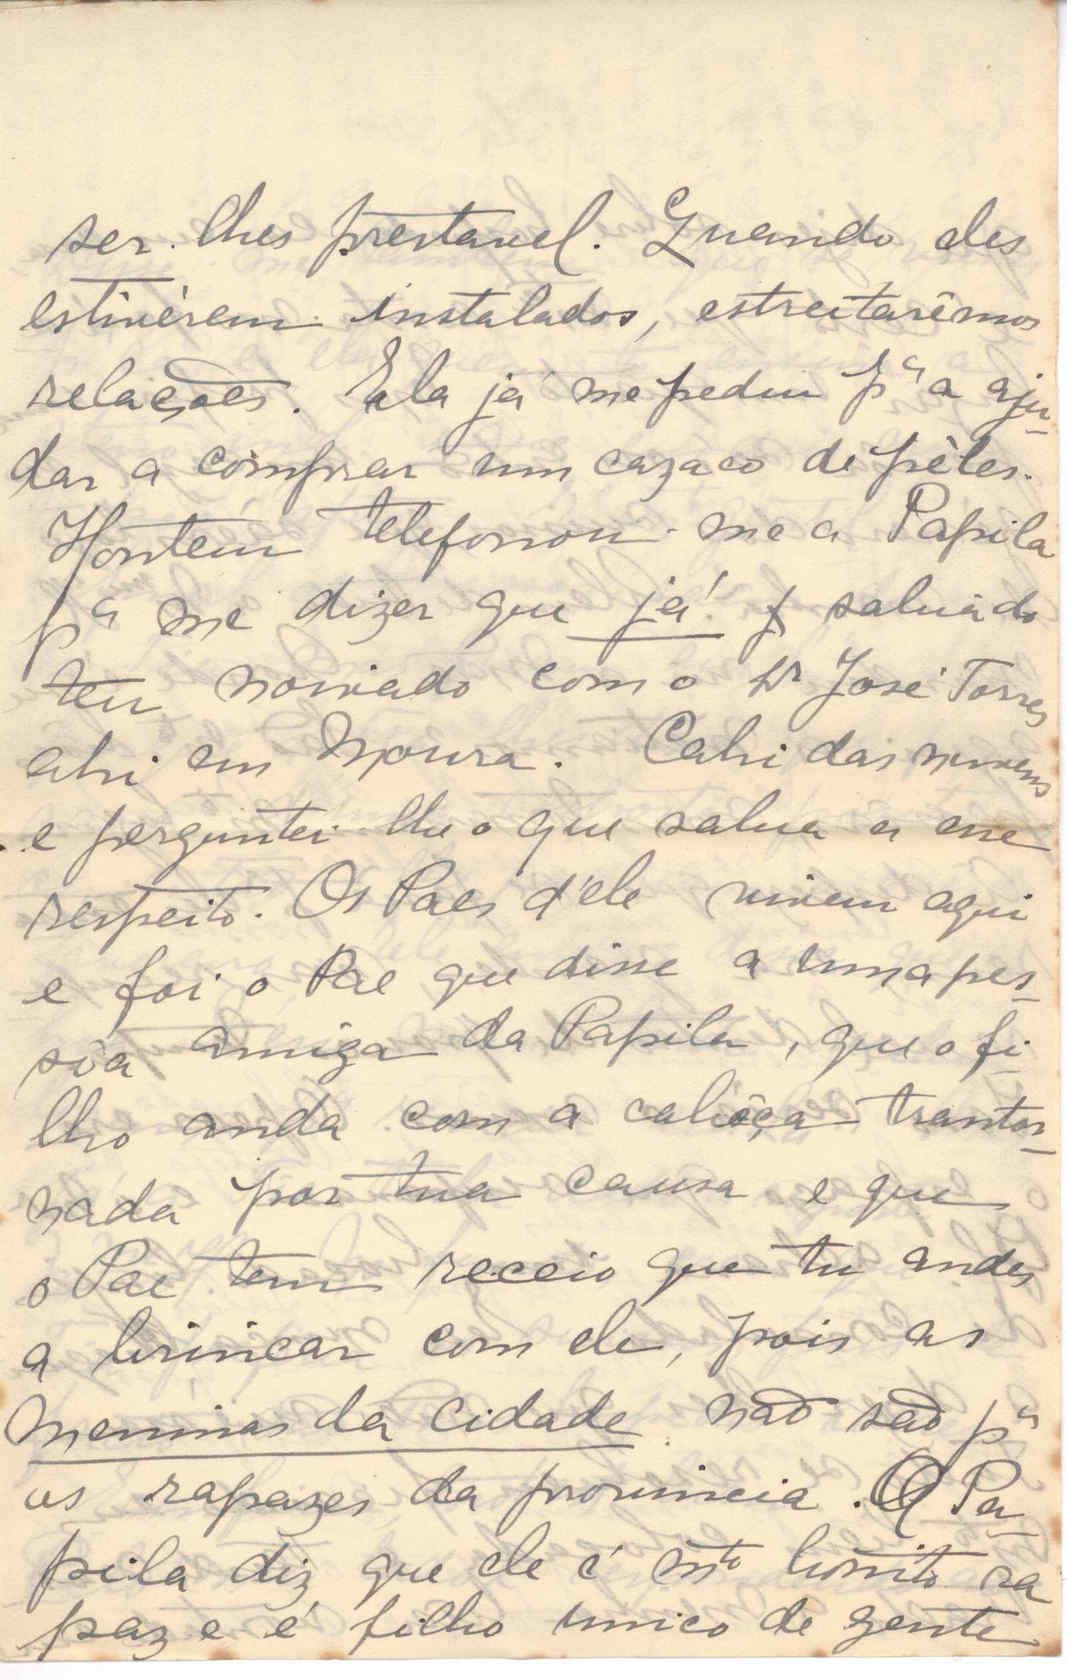 ser-lhes prestavel. Quando eles
estivèrem instalados, estreitarêmos
relações. Ela já me pediu pª a aju-
dar a comprar um cazaco de péles.
Hontem telefonou-me a Papila
pª me dizer que já! sabia do
teu noivado com o Dr José Torres
ahi em Moura. Cahi das nuvens
e perguntei-lhe o que sabia a esse
respeito. Os Paes d'ele vivem aqui
e foi o Pae que disse a uma pes-
sôa amiga da Papila, que o fi-
lho anda com a cabêça trantor-
nada por tua causa e que
o Pae tem receio que tu andes
a brincar com ele, pois as
meninas da cidade não são pª
os rapazes da provincia. A Pa-
pila diz que ele é mto bonito ra
paz e é filho unico de gente